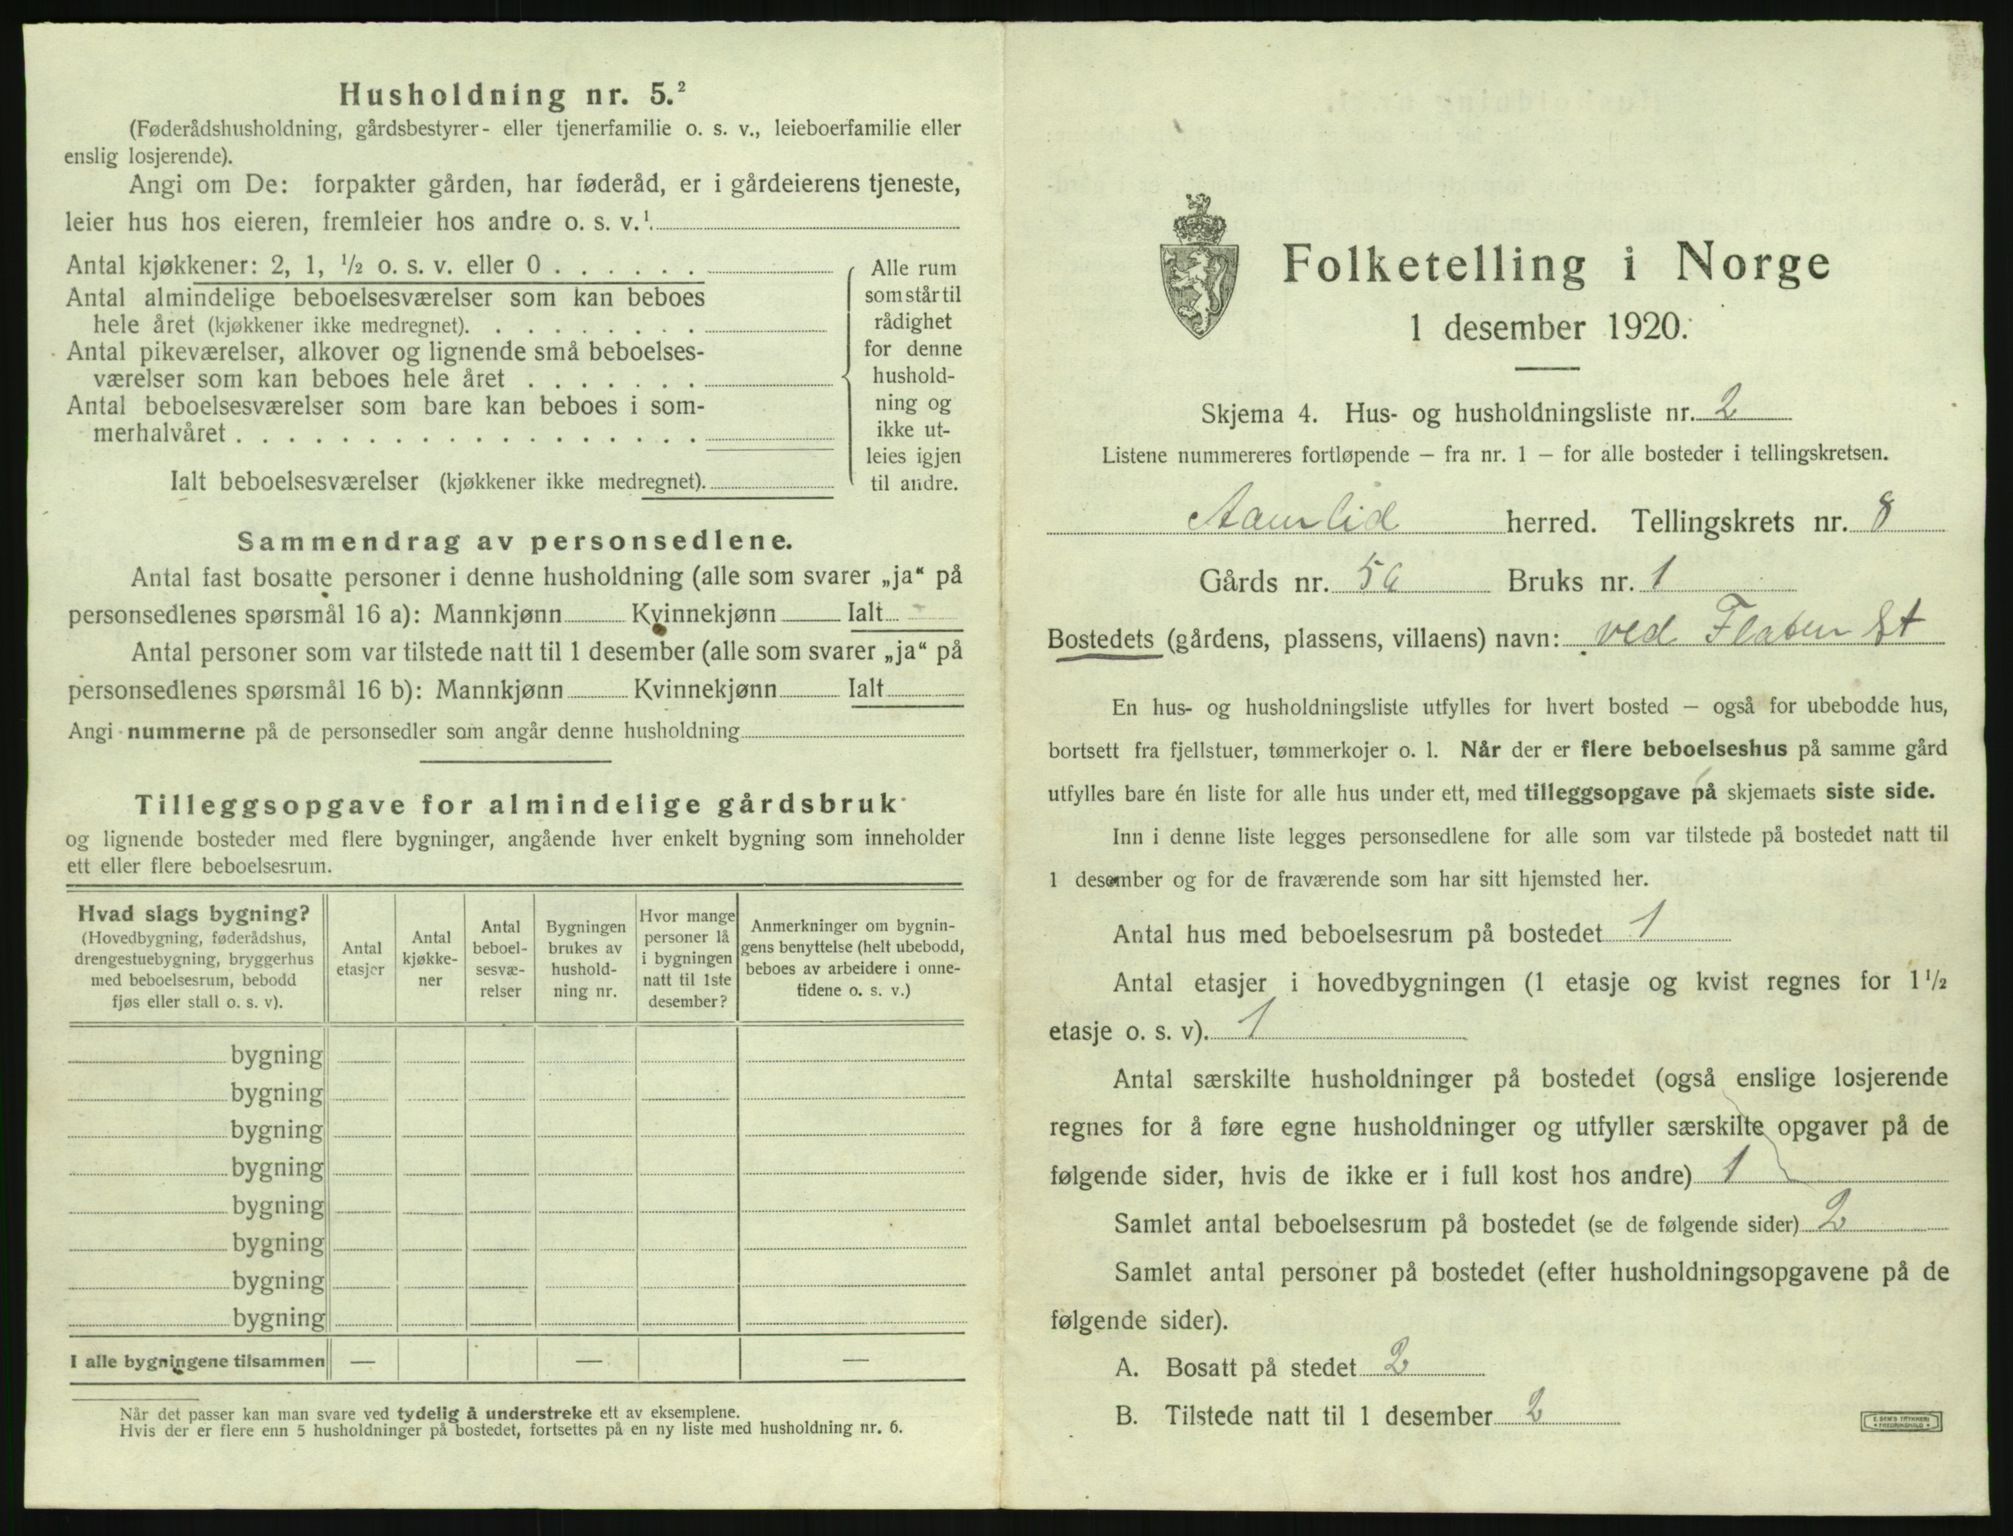 Husholdning nr. 5.²
(Føderådshusholdning, gårdsbestyrer- eller tjenerfamilie o. s. v., leieboerfamilie eller
enslig losjerende).
Angi om De: forpakter gården, har føderåd, er i gårdeierens tjeneste,
leier hus hos eieren, fremleier hos andre o. s. v.¹
Antal kjøkkener: 2, 1, ½ o. s. v. eller 0 . . . . . .
Antal almindelige beboelsesværelser som kan beboes
hele året (kjøkkener ikke medregnet). . . . . . . . .
Antal pikeværelser, alkover og lignende små beboelses-
værelser som kan beboes hele året . . . . . . .
Antal beboelsesværelser som bare kan beboes i som-
merhalvåret . . . . . . . . . . . . . . . . . .
Ialt beboelsesværelser (kjøkkener ikke medregnet).
Alle rum
som står til
rådighet
for denne
hushold-
ning og
ikke ut-
leies igjen
til andre.
Sammendrag av personsedlene.
Antal fast bosatte personer i denne husholdning (alle som svarer „ja“ på
personsedlenes spørsmål 16 a): Mannkjønn Kvinnekjønn Ialt
Antal personer som var tilstede natt til 1 desember (alle som svarer „ja“ på
personsedlenes spørsmål 16 b): Mannkjønn Kvinnekjønn Ialt
Angi nummerne på de personsedler som angår denne husholdning
Tilleggsopgave for almindelige gårdsbruk
og lignende bosteder med flere bygninger, angående hver enkelt bygning som inneholder
ett eller flere beboelsesrum.
Hvad slags bygning?
(Hovedbygning, føderådshus,
drengestuebygning, bryggerhus
med beboelsesrum, bebodd
fjøs eller stall o. s. v).
Antal
etasjer
Antal
kjøkke-
ner
Antal
beboel-
sesvæ-
relser
Bygningen
brukes av
hushold-
ning nr.
Hvor mange
personer lå
i bygningen
natt til 1ste
desember?
Anmerkninger om bygnin-
gens benyttelse (helt ubebodd,
beboes av arbeidere i onne-
tidene o. s. v.)
bygning
bygning
bygning
bygning
bygning
bygning
bygning
bygning
I alle bygningene tilsammen — — —
Når det passer kan man svare ved tydelig å understreke ett av eksemplene.
Hvis der er flere enn 5 husholdninger på bostedet, fortsettes på en ny liste med husholdning nr. 6.
Folketelling i Norge
1 desember 1920.
Skjema 4. Hus- og husholdningsliste nr. 2
Listene nummereres fortløpende — fra nr. 1 — for alle bosteder i tellingskretsen.
Aamlid herred. Tellingskrets nr. 8
Gårds nr. Bruks nr. 1
Bostedets (gårdens, plassens, villaens) navn: ved Flaten St
En hus- og husholdningsliste utfylles for hvert bosted — også for ubebodde hus,
bortsett fra fjellstuer, tømmerkojer o. l. Når der er flere beboelseshus på samme gård
utfylles bare én liste for alle hus under ett, med tilleggsopgave på skjemaets siste side.
Inn i denne liste legges personsedlene for alle som var tilstede på bostedet natt til
1 desember og for de fraværende som har sitt hjemsted her.
Antal hus med beboelsesrum på bostedet 1
Antal etasjer i hovedbygningen (1 etasje og kvist regnes for 1½
etasje o. s. v). 1
Antal særskilte husholdninger på bostedet (også enslige losjerende
regnes for å føre egne husholdninger og utfyller særskilte opgaver på de
følgende sider, hvis de ikke er i full kost hos andre) 1
Samlet antal beboelsesrum på bostedet (se de følgende sider) 2
Samlet antal personer på bostedet (efter husholdningsopgavene på de
følgende sider).
A. Bosatt på stedet 2
B. Tilstede natt til 1 desember 2